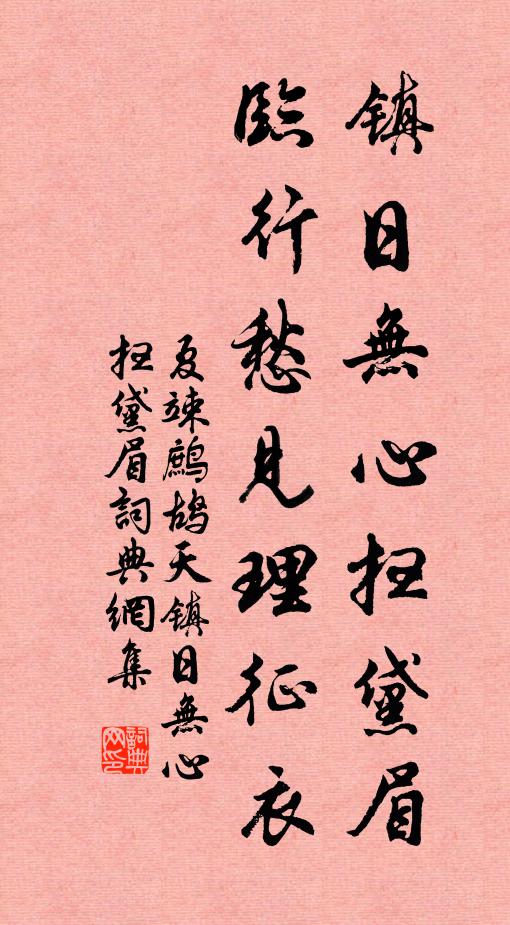 鎮日無心掃黛眉
臨行愁見理征衣
夏竦鷓鴣天鎮日無心
掃黛眉詞典網集
詞典網印